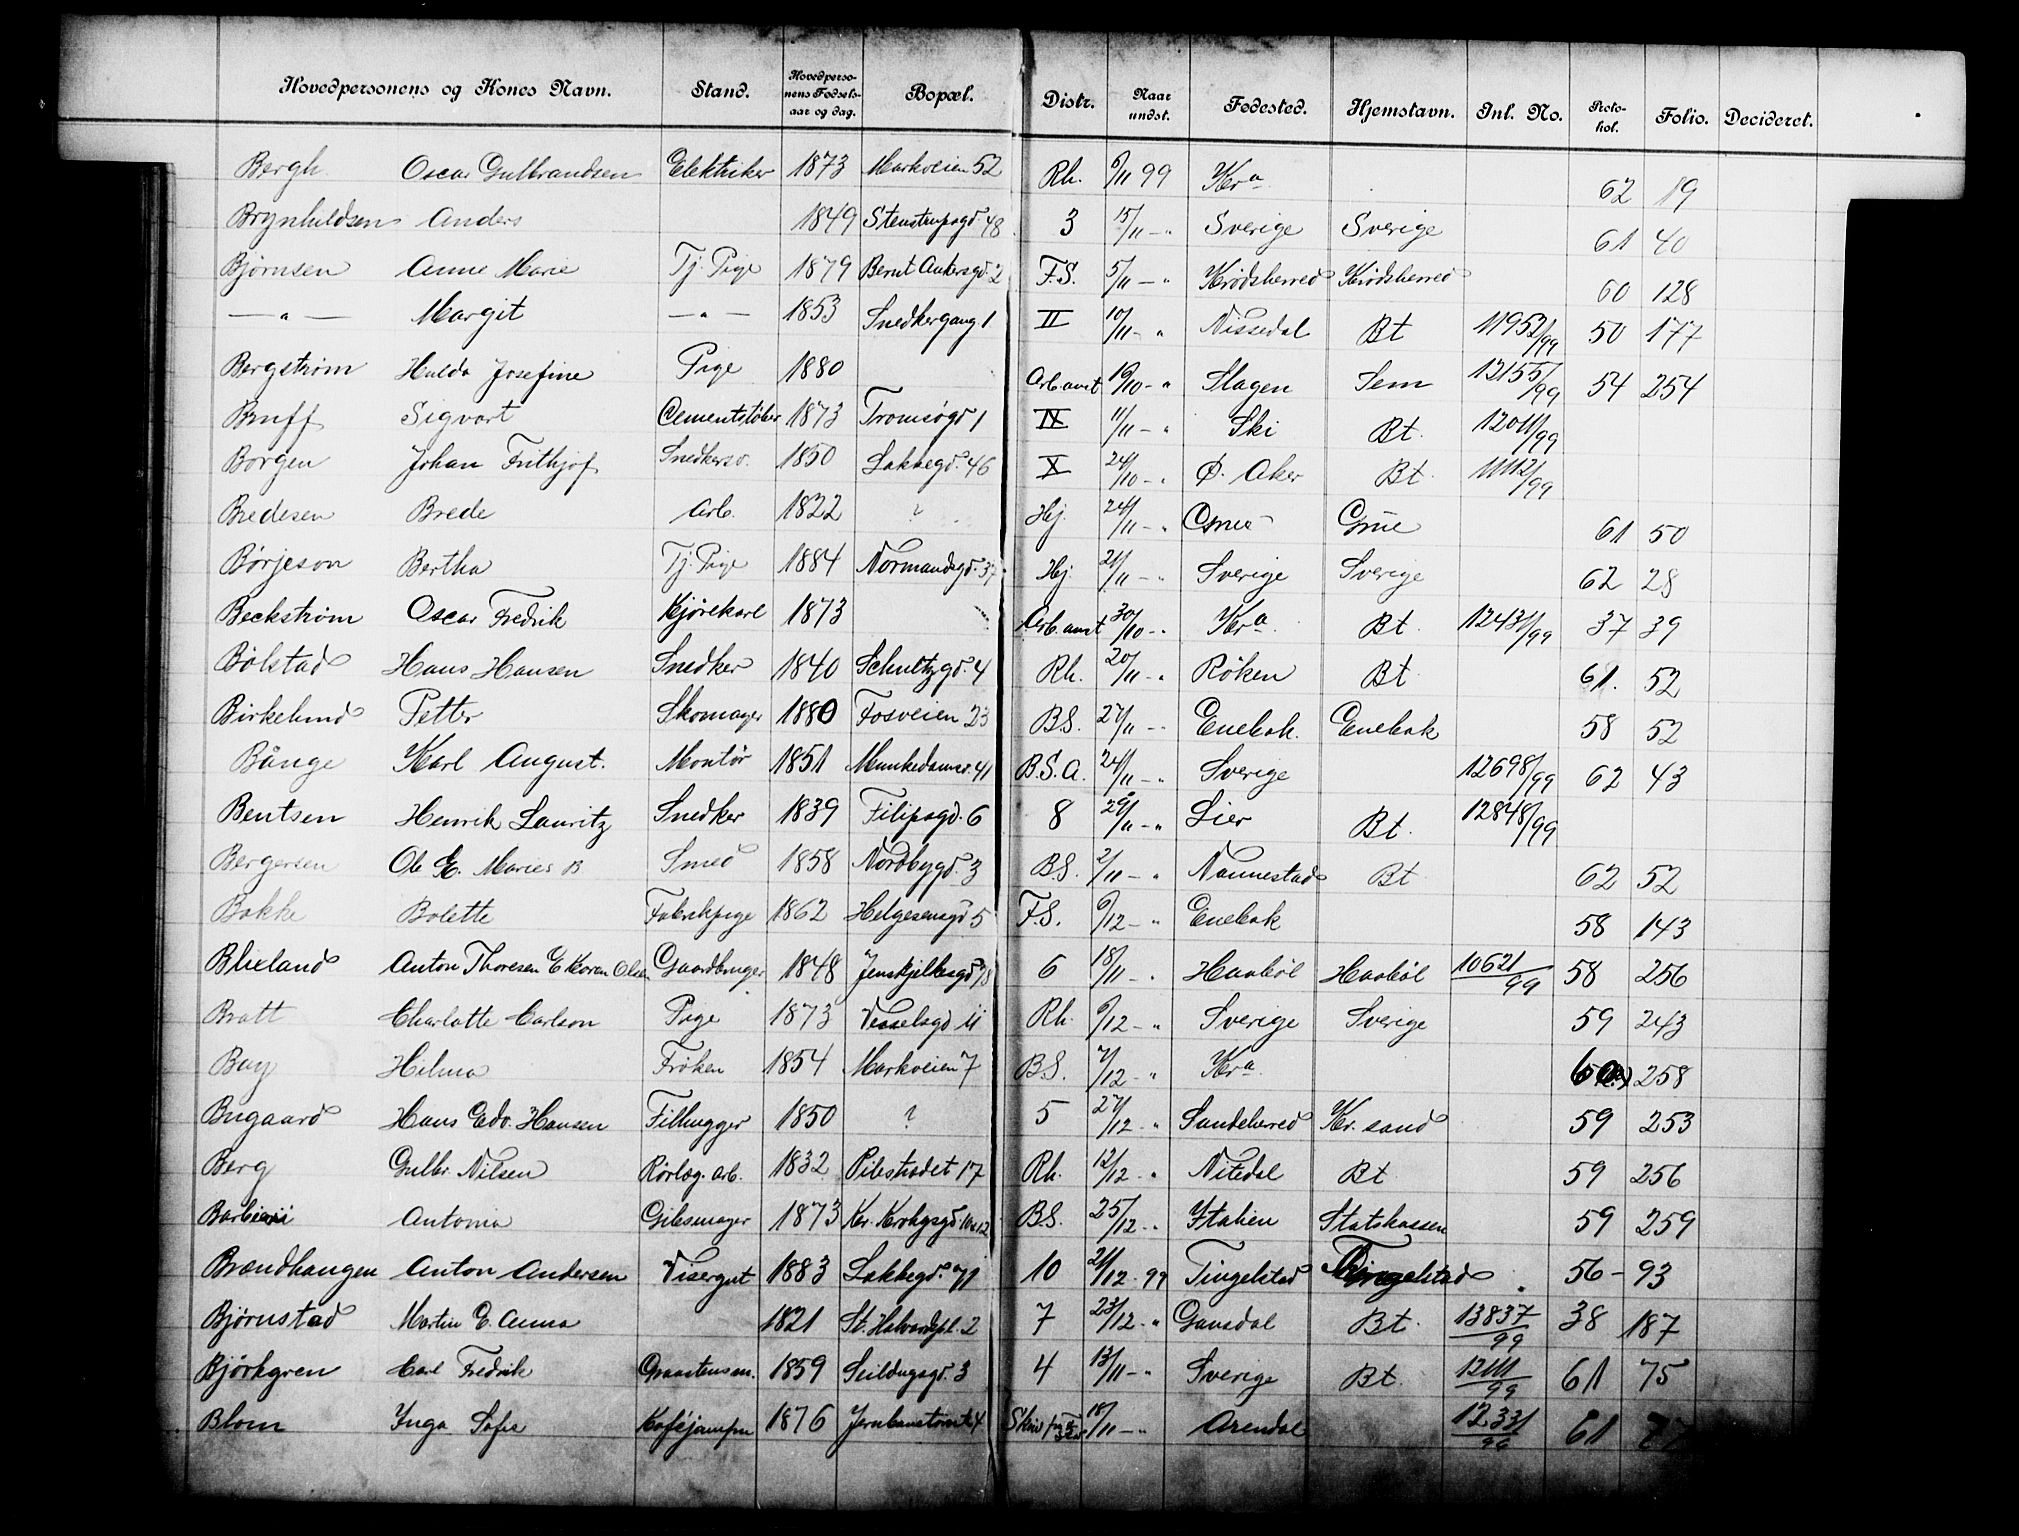 Hovedpersonens og Kones Navn. Stand. Hovedperso-nens Fødsels-aar og dag. Bopæl. Distr. Naar undst. Fødested. Hjemstavn. Inl. No. Proto-kol. Folio. Decideret.
Bergh Oscar Gulbrandsen Elektriker 1873 Markveien 52 Rh. 6/11 99 Kra. 62 19
Brynhildsen Anders 1849 Stenstrupsgd. 48 3 15/11 - " Sverige Sverige 61 40
Bjørnsen Anne Marie Tj. Pige 1879 Bernt Ankersgd. 2 F.S. 5/11 - " Krødsherred Krødsherred 60 128
— " — Margit — " — 1853 Snedkergang 1 II 10/11 - " Nissedal Bt 11952/99 50 177
Bergstrøm Hulda Josefine Pige 1880 Arb. anst 19/10 - " Slagen Sem 12155/99 54 254
Bruff Sigvart Cementstøber 1873 Tromsøgd 1 IX 11/11 - " Ski Bt. 12011/99
Borgen Johan Frithjof Snedkersv. 1850 Lakkegd. 46 X 24/10 - " Ø. Aker Bt. 11112/99
Bredesen Brede Arb. 1822 ? Hj. 24/11 - " Grue Grue 61 50
Børjeson Bertha Tj. Pige 1884 Normandsgd. 37 Hj. 21/11 - " Sverige Sverige 62 28
Beckstrøm Oscar Fredrik Kjørekarl 1873 Arb. anst 30/10 - " Kra. Bt. 12431/99 37 39
Bølstad Hans Hansen Snedker 1840 Schultzgd. 4 Rh. 20/11 - " Røken Bt 61. 52
Birkelund Petter Skomager 1880 Fosveien 23 B.S. 27/11 - " Enebak. Enebak 58 52
Bånge Karl August. Montør 1851 Munkedamsv. 41 B.S.A. 24/11 - " Sverige 12698/99 62 43
Bentsen Henrik Lauritz Snedker 1839 Filipsgd. 6 8 29/11 - " Lier Bt. 12848/99
Bergersen Ole E. Maries B Smed 1858 Nordbygd. 3 B.S. 2/11 - " Nannestad Bt 62 52
Bakke Bolette Fabrikpige 1862 Helgesensgd 5 F.S. 6/12 - " Enebak 58 143
Blixland Anton Thoresen E Karen Olsen Gaardbruger 1848 Jenskjelkesgd 18 6 18/11 - " Haabøl Haabøl 10621/99 58 256
Bratt Charlotte Carlson Pige 1873 Vesselsgd 11 Rh. 6/12 - " Sverige Sverige 59 243
Bay Hilma Frøken 1854 Markveien 7 B.S. 7/12 - " Kra. 258
Brugaard Hans Edv. Hansen Filhugger 1850 ? 5 27/12 - " Sandeherred Kr. sand 59 253
Berg Gulbr. Nilsen Rørlæg. arb. 1832 Pilestrædet 17 Rh. 12/12 - " Nitedal Bt 59 256
Barbieri Antonio Gibsmager 1873 Kr. B.S. 25/12 - " Italien Statskassen 59 259
Brændhaugen Anton Andersen Visergut 1883 Lakkegd. 71 10 21/12 - 99 Tingelstad Tingelstad 56 - 93
Bjørnstad Martin E. Anna 1821 St. Halvardspl. 2 7 23/12 - " Gausdal Bt. 13837/99 38 187
Bjørkgren Carl Fredrik Graastensm. 1859 Seildugsgd. 3 4 13/11 - " Sverige Bt. 12111/99 61 75
Blom Inga Sofie Kaféjomfru 1876 Jernbanetorvet 4 18/11 - " Arendal 12331/99 61 77